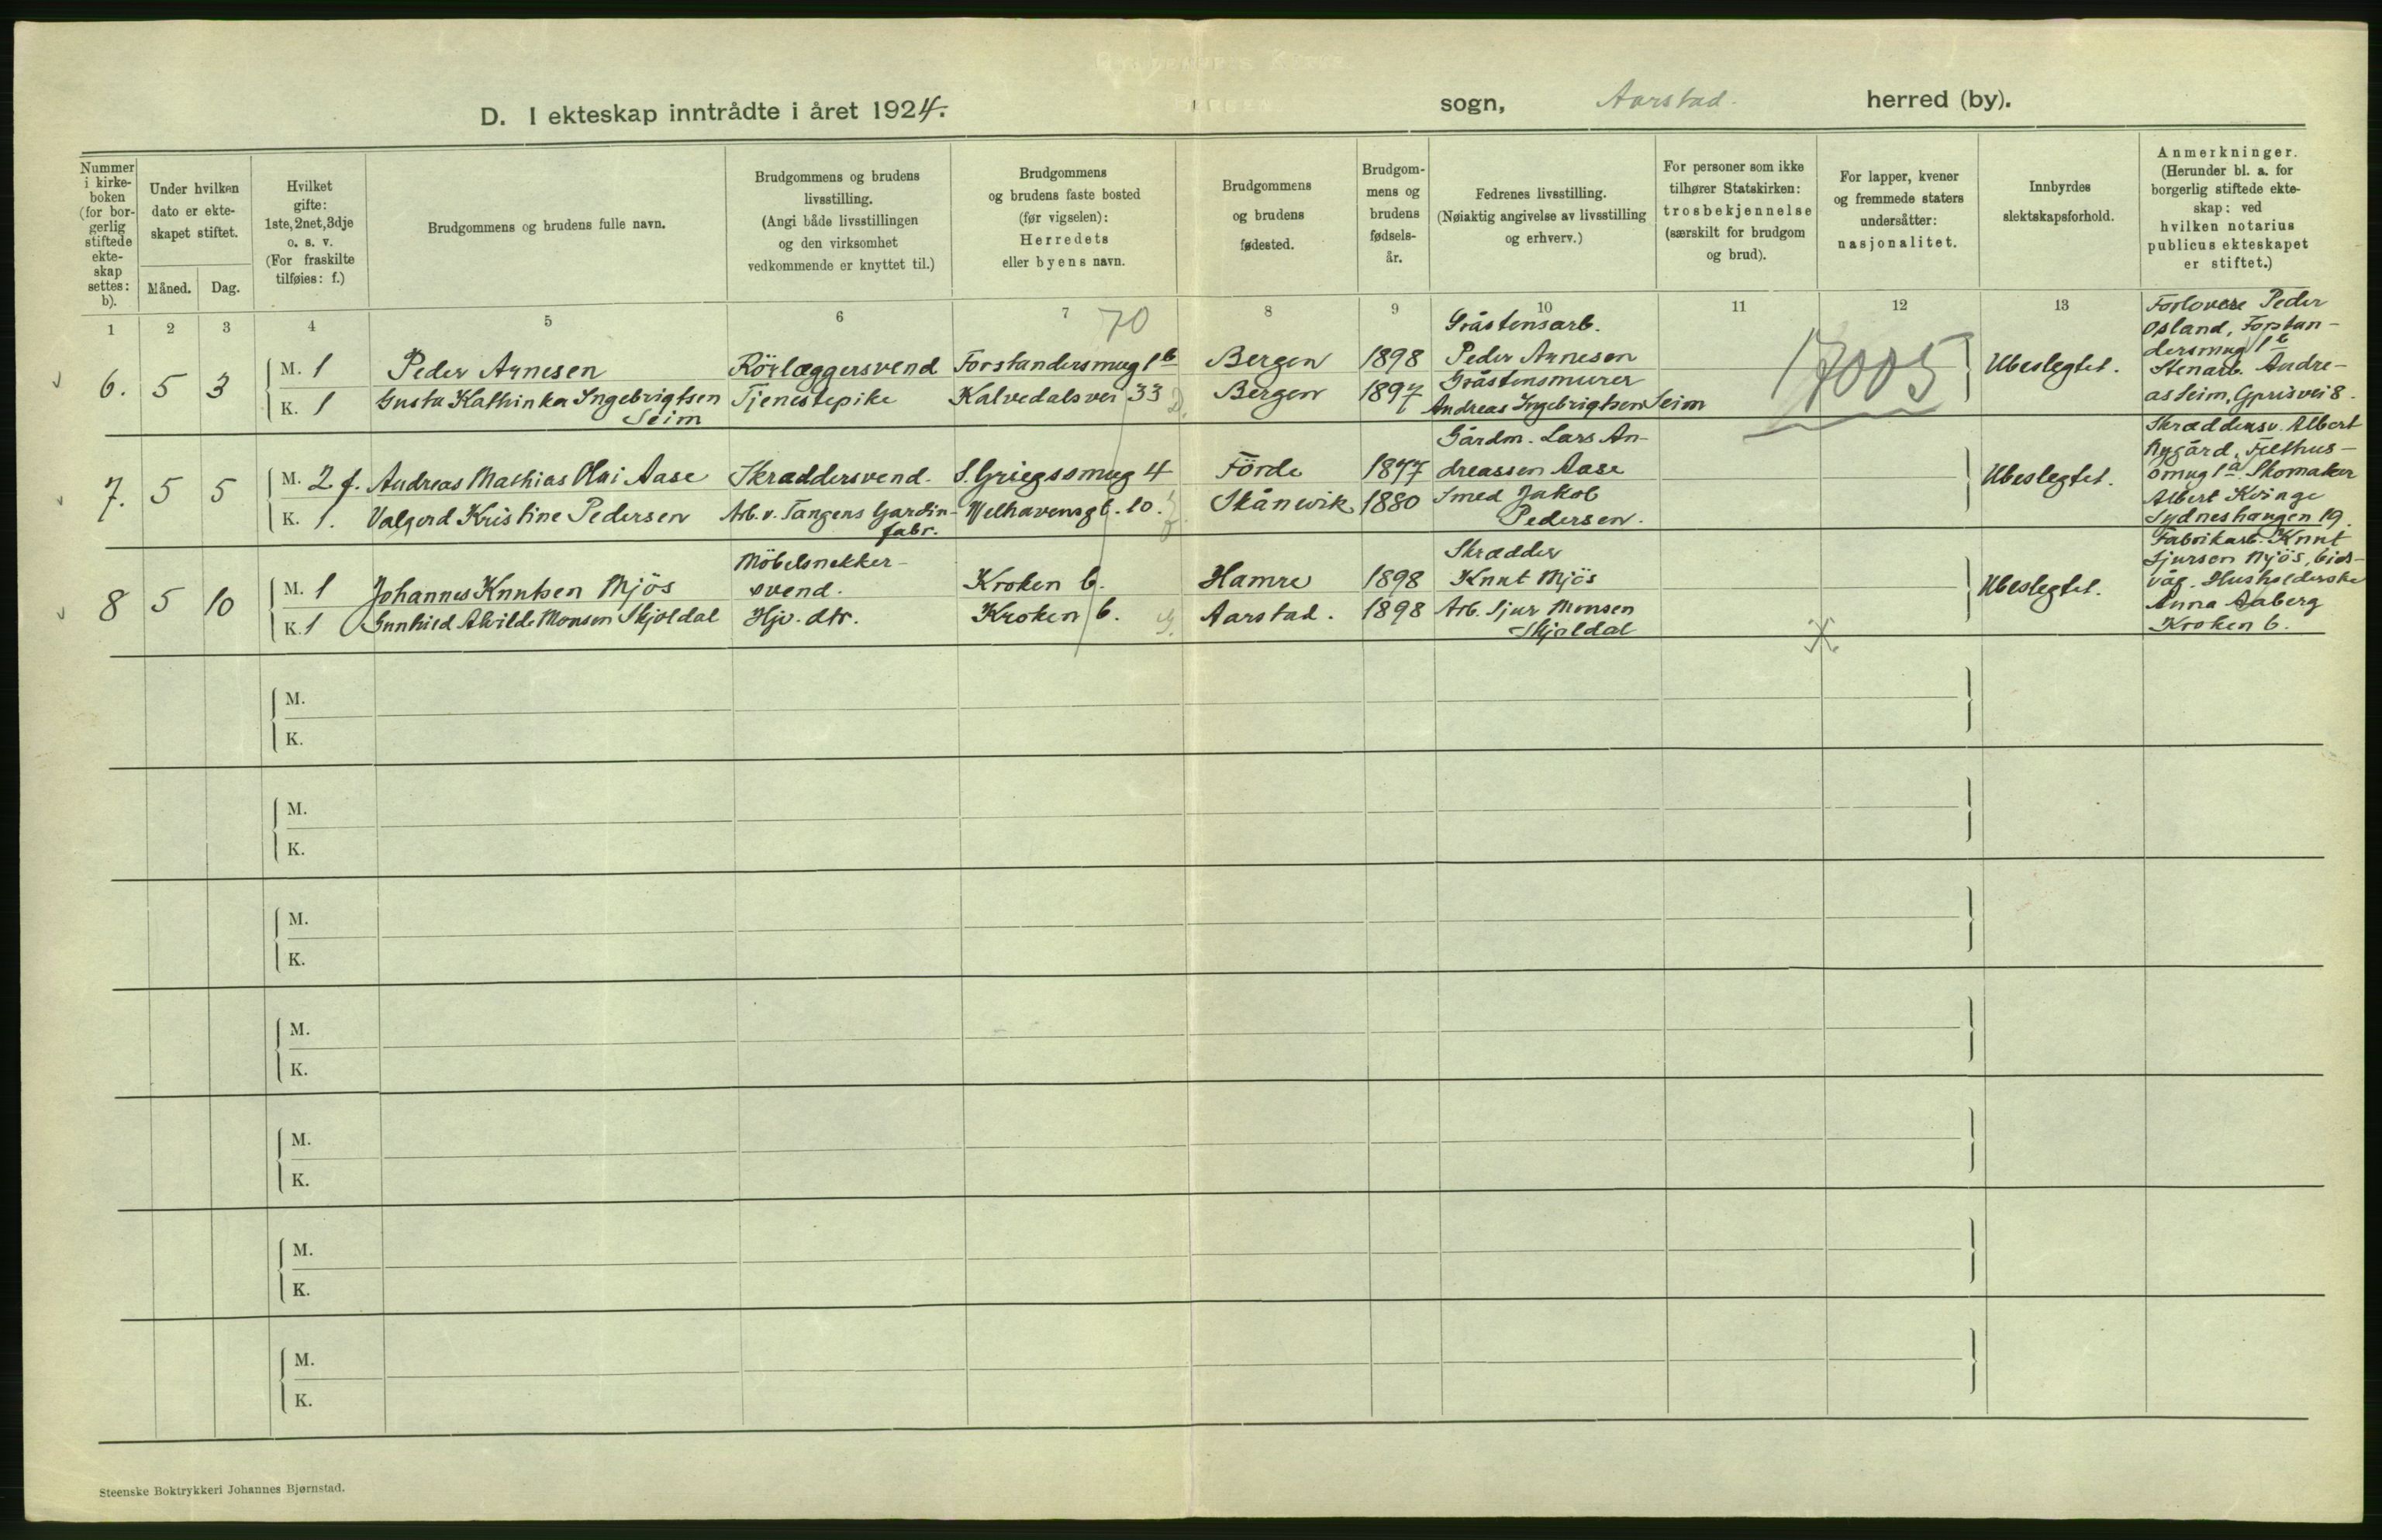 D. I ekteskap inntrådte i året 1924. sogn, Aarstad. herred (by).
Nummer i kirke- boken (for bor- gerlig stiftede ekte- skap settes: b).
Under hvilken dato er ekte- skapet stiftet.
Måned. Dag.
Hvilket gifte: 1ste, 2net, 3dje o. s. v. (For fraskilte tilføies: f.)
Brudgommens og brudens fulle navn.
Brudgommens og brudens livsstilling. (Angi både livsstillingen og den virksomhet vedkommende er knyttet til.)
Brudgommens og brudens faste bosted (før vigselen): Herredets eller byens navn.
Brudgommens og brudens fødested.
Brudgom- mens og brudens fødsels- år.
Fedrenes livsstilling. (Nøiaktig angivelse av livsstilling og erhverv.)
For personer som ikke tilhører Statskirken: trosbekjennelse (særskilt for brudgom og brud).
For lapper, kvener og fremmede staters undersåtter: nasjonalitet.
Innbyrdes slektskapsforhold.
Anmerkninger. (Herunder bl. a. for borgerlig stiftede ekte- skap: ved hvilken notarius publicus ekteskapet er stiftet.)
1 2 3 4 5 6 7 8 9 10 11 12 13
70
17005
6. 5 3
M. 1 Peder Arnesen Rörlæggersvend Forstandersmug 1b Bergen 1898 Gråstensarb. Peder Arnesen
K. 1 Gusta Kathinka Ingebrigtsen Seim Tjenestepike Kalvedalsvei 33 Bergen 1897 Gråstensmurer Andreas Ingebrigtsen Seim
Ubeslegtet.
Forlovere Peder
Osland, Forstan-
dersmug 1b
Stenarb. Andre-
as Seim,
7. 5 5
M. 2 f. Andreas Mathias Olai Aase Skræddersvend. S. Griegssmug 4 Förde 1877 Gårdm. Lars An- dreassen Aase
K. 1. Valgerd Kristine Pedersen Arb. v. Tangens Gardin- fabr. Welhavensgt. 10. Skånevik 1880 Smed Jakob Pedersen.
Ubeslegtet.
Skræddersv. Albert
Nygård,
smug 1a. Skomaker
Albert Kvinge
Sydneshaugen 19.
8 5 10
M. 1 Johannes Knutsen Mjös Möbelsnekker- svend. Kroken 6. Hamre 1898 Skrædder Knut Mjös
K. 1 Gunhild Alvilde Monsen Skjoldal Hjv. dtr. Kroken 6. Aarstad. 1898 Arb. Sjur Monsen Skjoldal
Ubeslegtet.
Fabrikarb. Knut
Sjursen Mjös, Eids-
våg. Husholderske
Anna Aaberg
Kroken 6.
M.
K.
M.
K.
M.
K.
M.
K.
M.
K.
M.
K.
M.
K.
Steenske Boktrykkeri Johannes Bjørnstad.